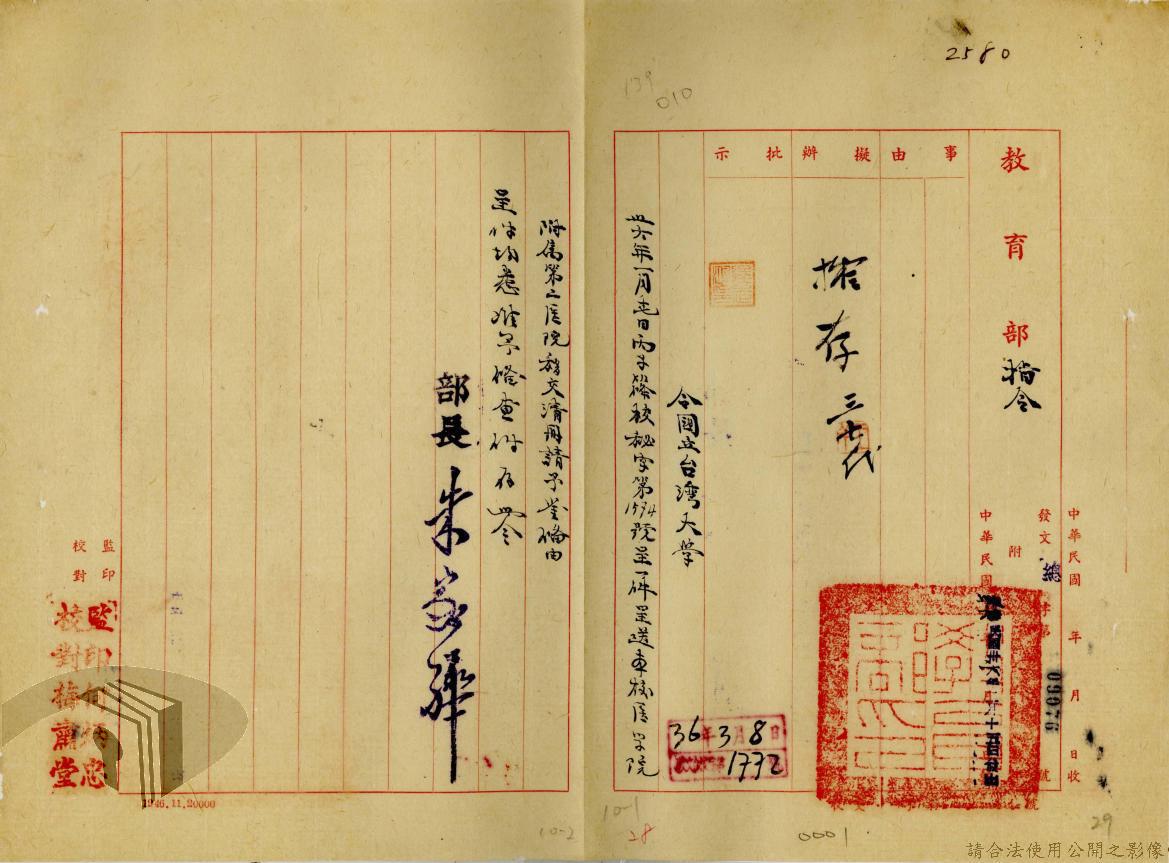 2580
139
010
教育部指令
中華民國 年 月 日收
發文總字第09076號
附
中華民國
事由
擬辦
批示
擬存
三七代
令國立台灣大學
卅六年一月 日丙子 校秘字第1594號呈一件呈送本校医学院
附屬第二医院移交清冊請予鉴備由
呈件均悉准予备查件存此令
部長朱家驊
36年3月8日
1772
監印
校對
監印何炳忠
校對 蕭堂
1946.11.20000
10-2
10-1
28
0001
29
請合法使用公開之影像